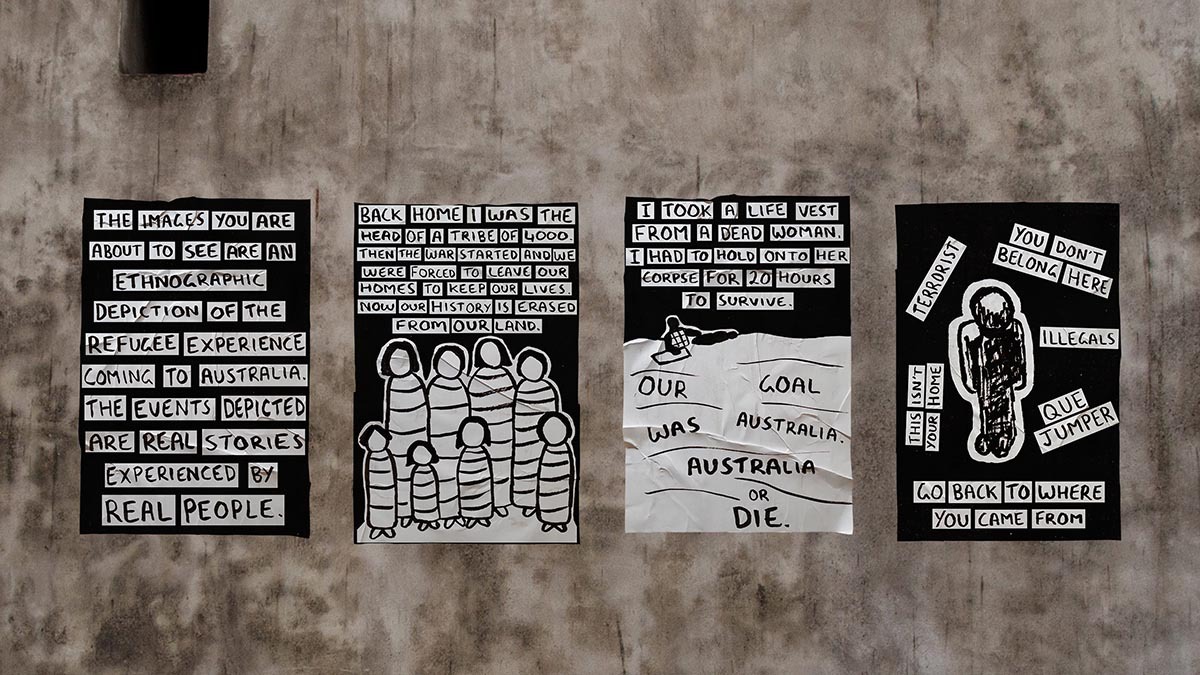 THE IMAGES YOU ARE
ABOUT TO SEE ARE AN
ETHNOGRAPHIC
DEPICTION OF THE
REFUGEE EXPERIENCE
COMING TO AUSTRALIA.
THE EVENTS DEPICTED
ARE REAL STORIES
EXPERIENCED BY
REAL PEOPLE.
BACK HOME I WAS THE
HEAD OF A TRIBE OF 4000.
THEN THE WAR STARTED AND WE
WERE FORCED TO LEAVE OUR
HOMES TO KEEP OUR LIVES.
NOW OUR HISTORY IS ERASED
FROM OUR LAND.
I TOOK A LIFE VEST
FROM A DEAD WOMAN.
I HAD TO HOLD ONTO HER
CORPSE FOR 20 HOURS
TO SURVIVE.
OUR GOAL
WAS AUSTRALIA.
AUSTRALIA
OR
DIE.
TERRORIST
YOU DON'T
BELONG HERE
ILLEGALS
THIS ISN'T
YOUR HOME
QUE
JUMPER
GO BACK TO WHERE
YOU CAME FROM